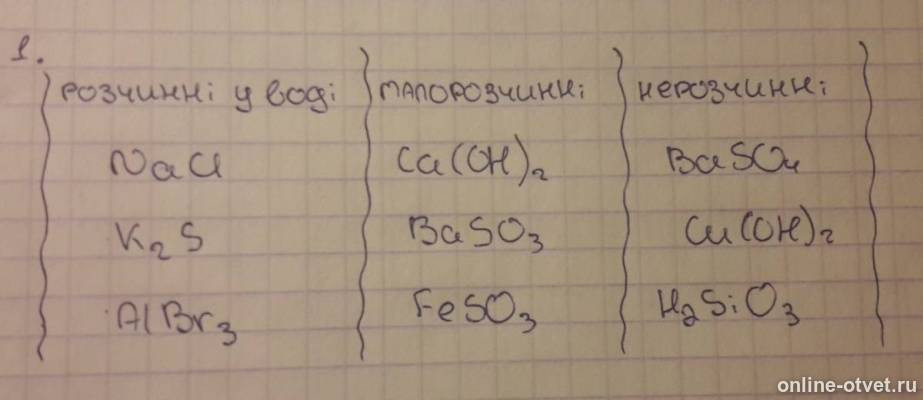 1.
розчинні у воді малорозчинні нерозчинні
NaCl Ca(OH)₂ BaSO₄
K₂S BaSO₃ Cu(OH)₂
AlBr₃ FeSO₃ H₂SiO₃
online-otvet.ru